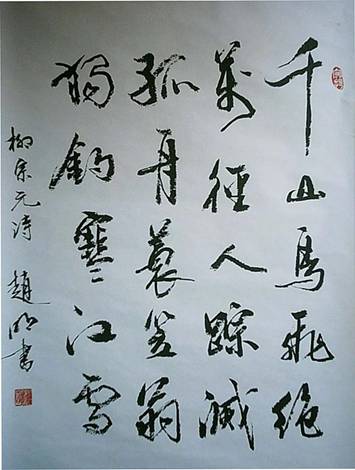 千山鳥飛絶
萬徑人踪滅
孤舟蓑笠翁
獨釣寒江雪
柳宗元詩 趙明書